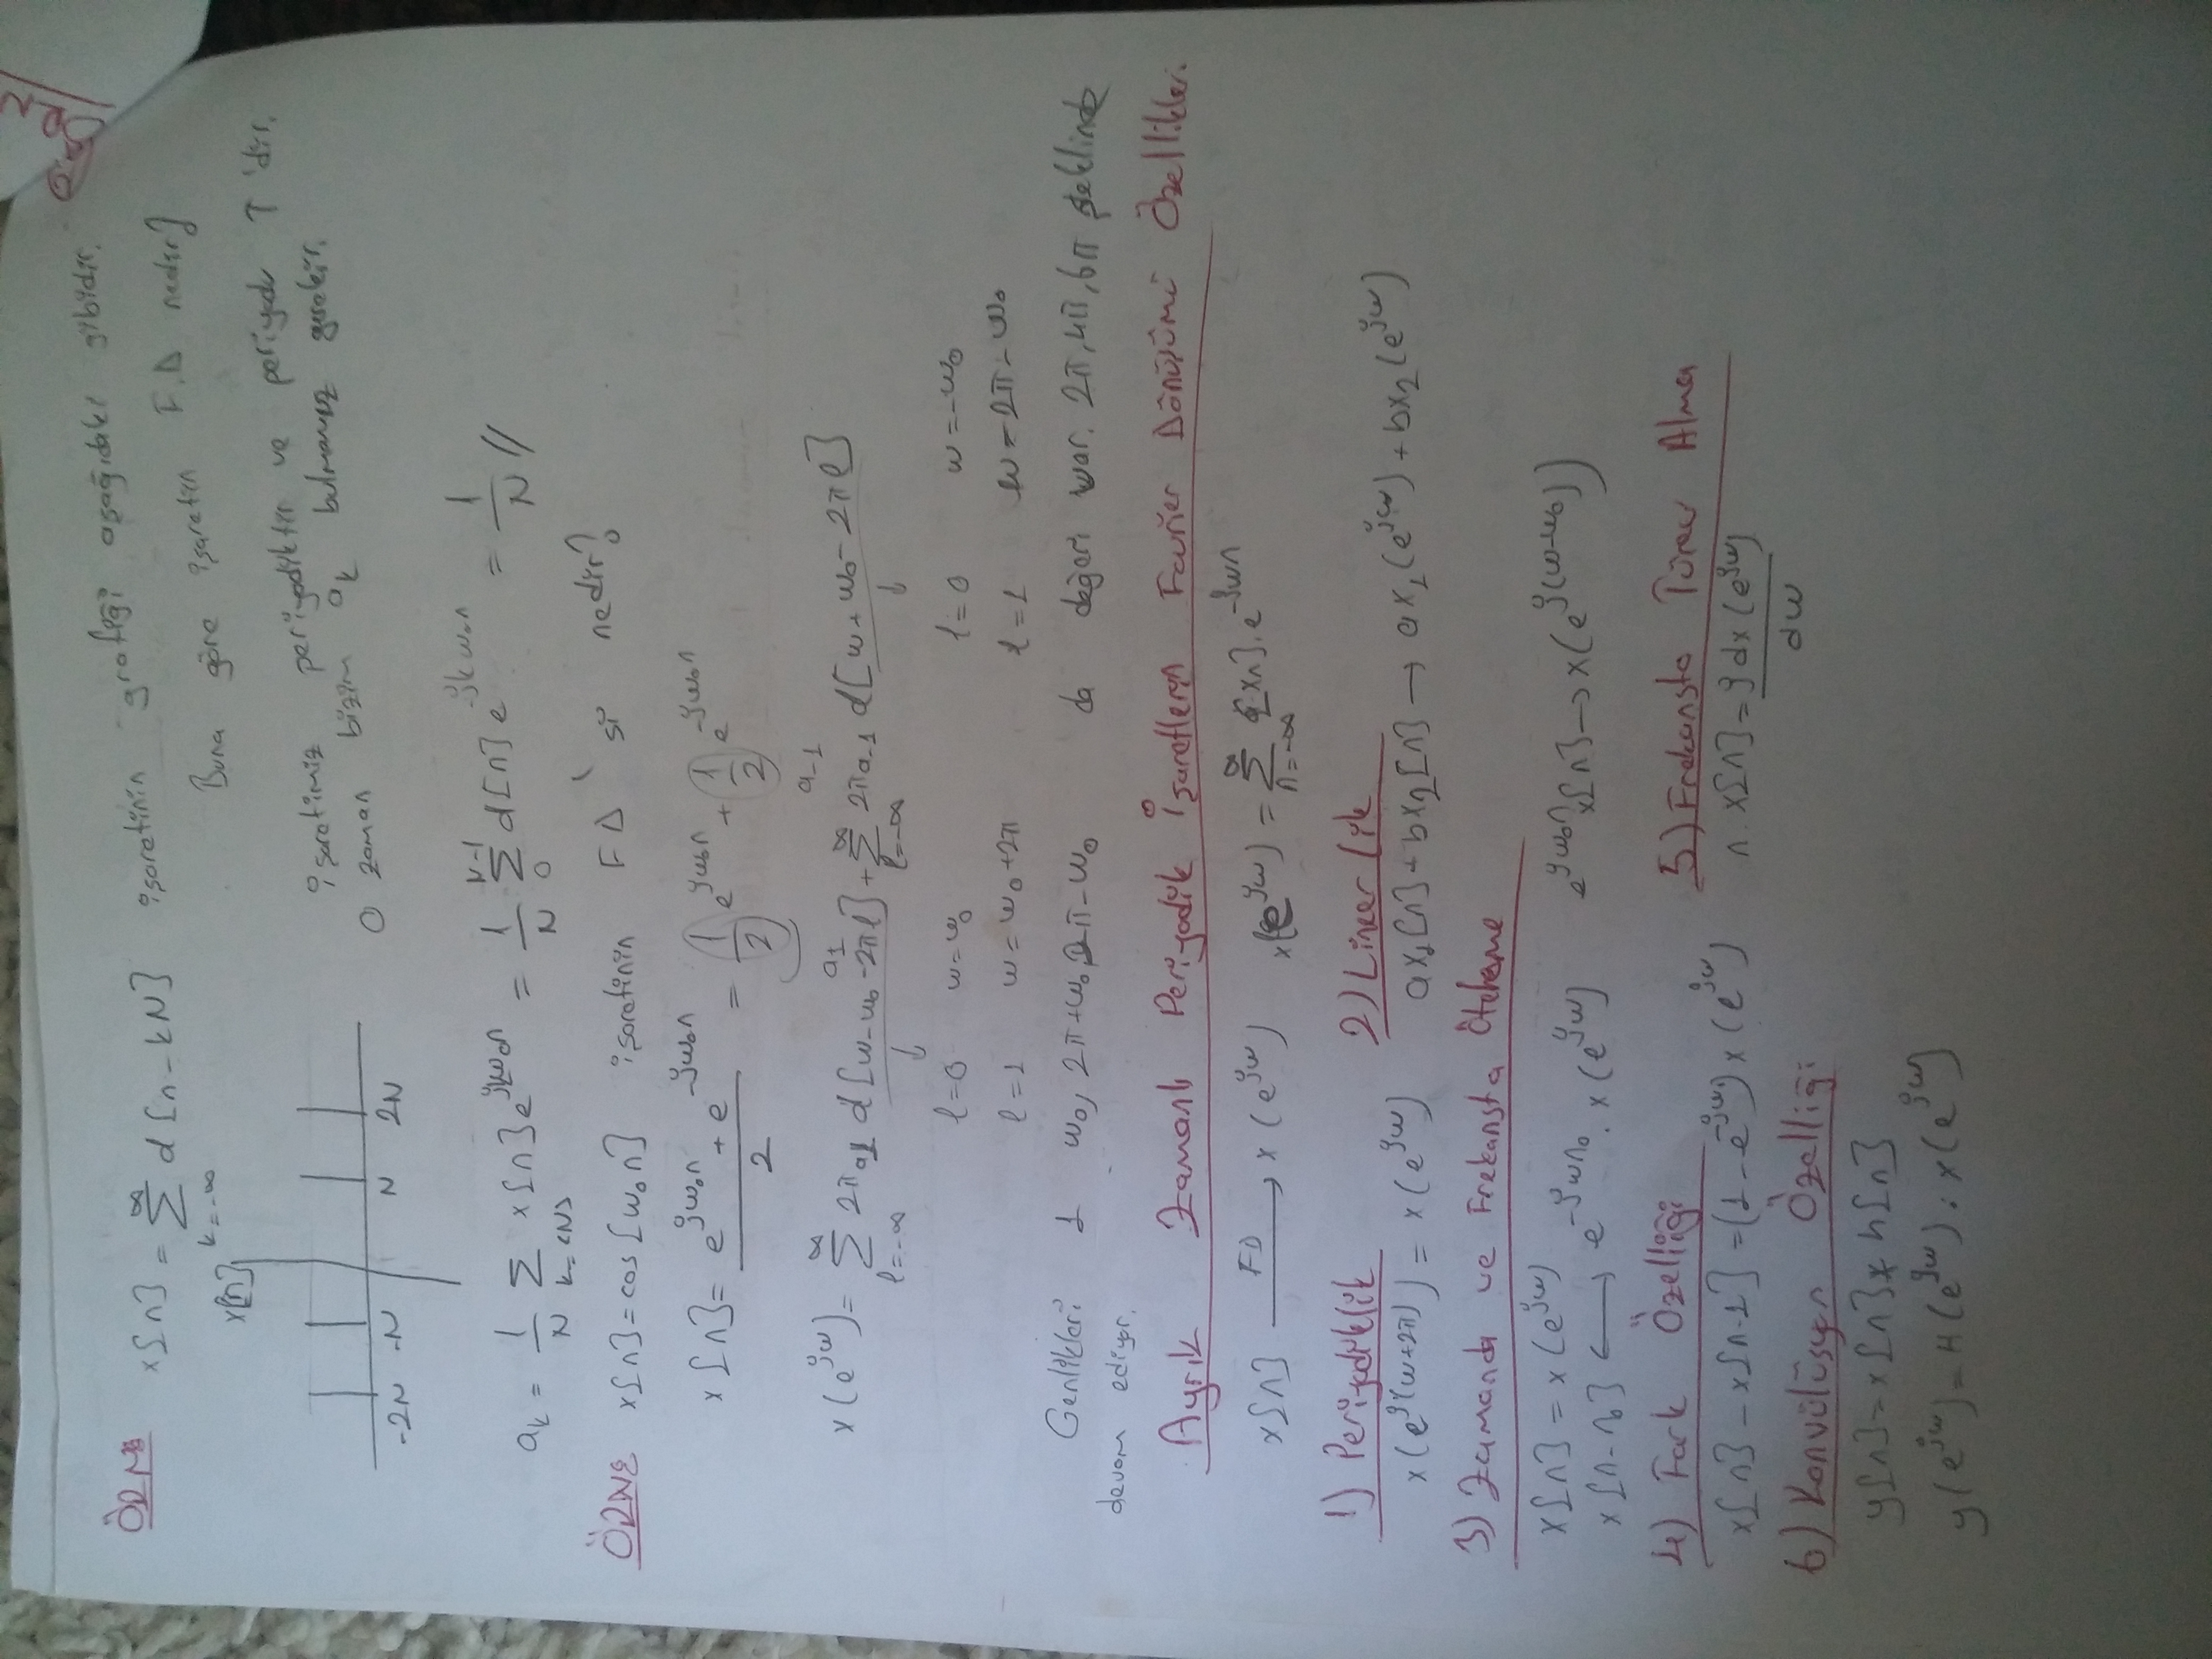 ÖRN: x[n] = ∑ d[n-kN] işaretinin grafiği aşağıdaki gibidir.
∞
k=-∞
Buna göre işaretin F.D nedir?
x[n]
-2N -N N 2N
işaretimiz periyodiktir ve periyodu T 'dir.
O zaman bizim ak bulmamız gerekir.
ak = 1/N ∑ x[n] e^jkw₀n = 1/N ∑ d[n] e^-jkw₀n = 1/N //
k=<N> N-1 0
ÖRN: x[n] = cos[w₀n] işaretinin FD' si nedir?
x[n] = (e^jw₀n + e^-jw₀n)/2 = 1/2 e^jw₀n + 1/2 e^-jw₀n
a1 a-1
x(e^jw) = ∑ 2π a1 d[w-w₀-2πl] + ∑ 2π a-1 d[w+w₀-2πl]
∞ l=-∞ ∞ l=-∞
l=0 w=w₀ l=0 w=-w₀
l=1 w=w₀+2π l=1 w=2π-w₀
Genlikleri 1 w₀, 2π+w₀, 2π-w₀ da değeri var. 2π, 4π, 6π şeklinde
devam ediyor.
Ayrık Zamanlı Periyodik İşaretlerin Fourier Dönüşümü Özellikleri
x[n] —FD→ x(e^jw) x(e^jw) = ∑ x[n].e^-jwn
∞ n=-∞
1) Periyodiklik 2) Lineerlik
x(e^j(w+2π)) = x(e^jw) ax₁[n] + bx₂[n] → ax₁(e^jw) + bx₂(e^jw)
3) Zamanda ve Frekansta Öteleme
x[n] = x(e^jw)
x[n-n₀] ⟷ e^-jwn₀ . x(e^jw) e^jw₀n x[n] → x(e^j(w-w₀))
4) Fark Özelliği 5) Frekansta Türev Alma
x[n] - x[n-1] = (1-e^-jw) x(e^jw) n.x[n] = j dx(e^jw)/dw
6) Konvülüsyon Özelliği
y[n] = x[n] * h[n]
y(e^jw) = H(e^jw) . x(e^jw)